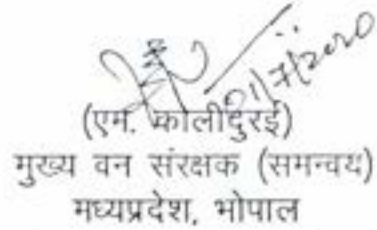 01/7/2020
(एम. कालीदुरई)
मुख्य वन संरक्षक (समन्वय)
मध्यप्रदेश, भोपाल